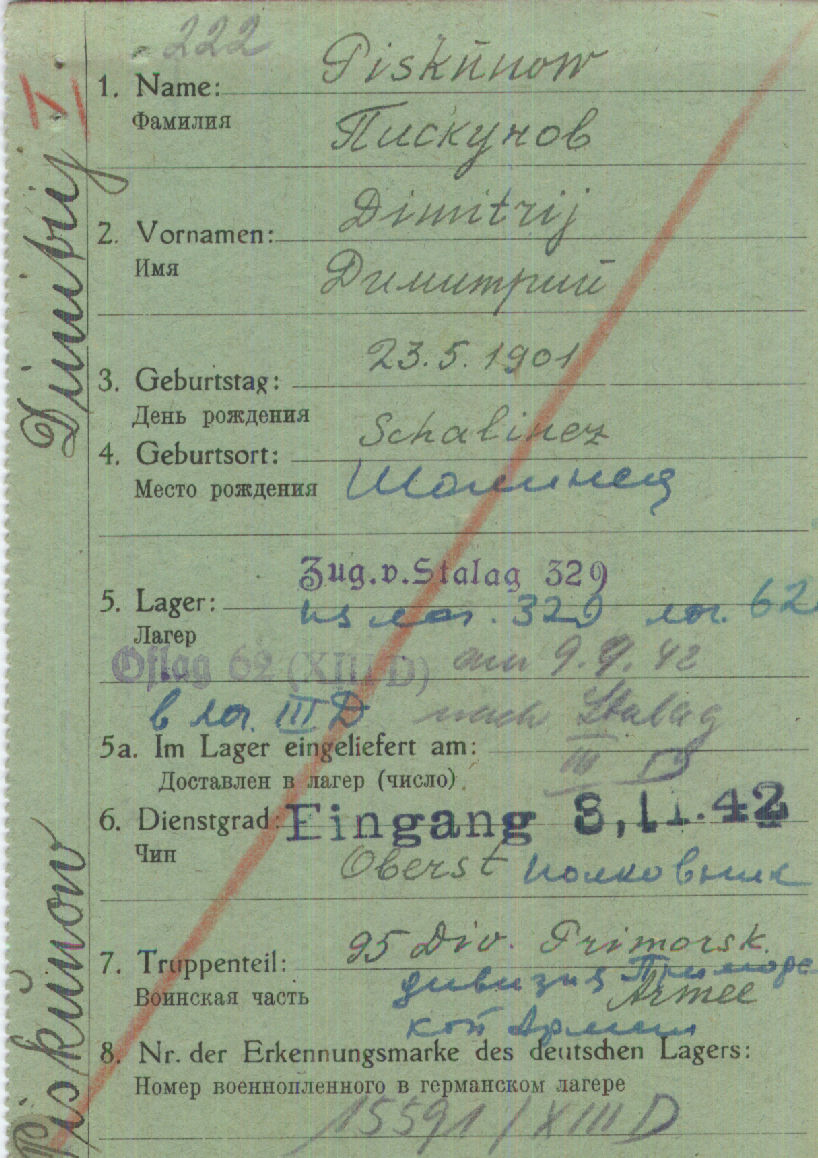 222
1. Name: Piskūnow
Фамилия Пискунов
2. Vornamen: Dimitrij
Имя Димитрий
3. Geburtstag: 23.5.1901
День рождения
4. Geburtsort: Schalinez
Место рождения Шалинец
Zug.v.Stalag 329
5. Lager: из лаг. 329 лаг. 62
Лагер
Oflag 62 (XIII D) am 9.9.42
в лаг. III D nach Stalag
5a. Im Lager eingeliefert am: III D
Доставлен в лагер (число)
6. Dienstgrad: Eingang 8,11.42
Чин Oberst полковник
7. Truppenteil: 95 Div. Primorsk.
Воинская часть дивизия Приморс
Armee
кой Армии
8. Nr. der Erkennungsmarke des deutschen Lagers:
Номер военнопленного в германском лагере
15591/XIII D
Piskūnow Dimitrij I.